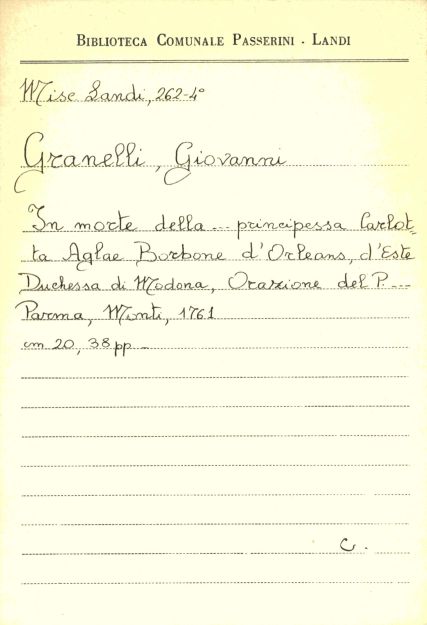 BIBLIOTECA COMUNALE PASSERINI - LANDI
Misc Landi, 262-4°
Granelli, Giovanni
In morte della ... principessa Carlot-
ta Aglae Borbone d'Orleans, d'Este
Duchessa di Modona, Orazione del P. ...
Parma, Monti, 1761
cm 20, 38 pp -
C.